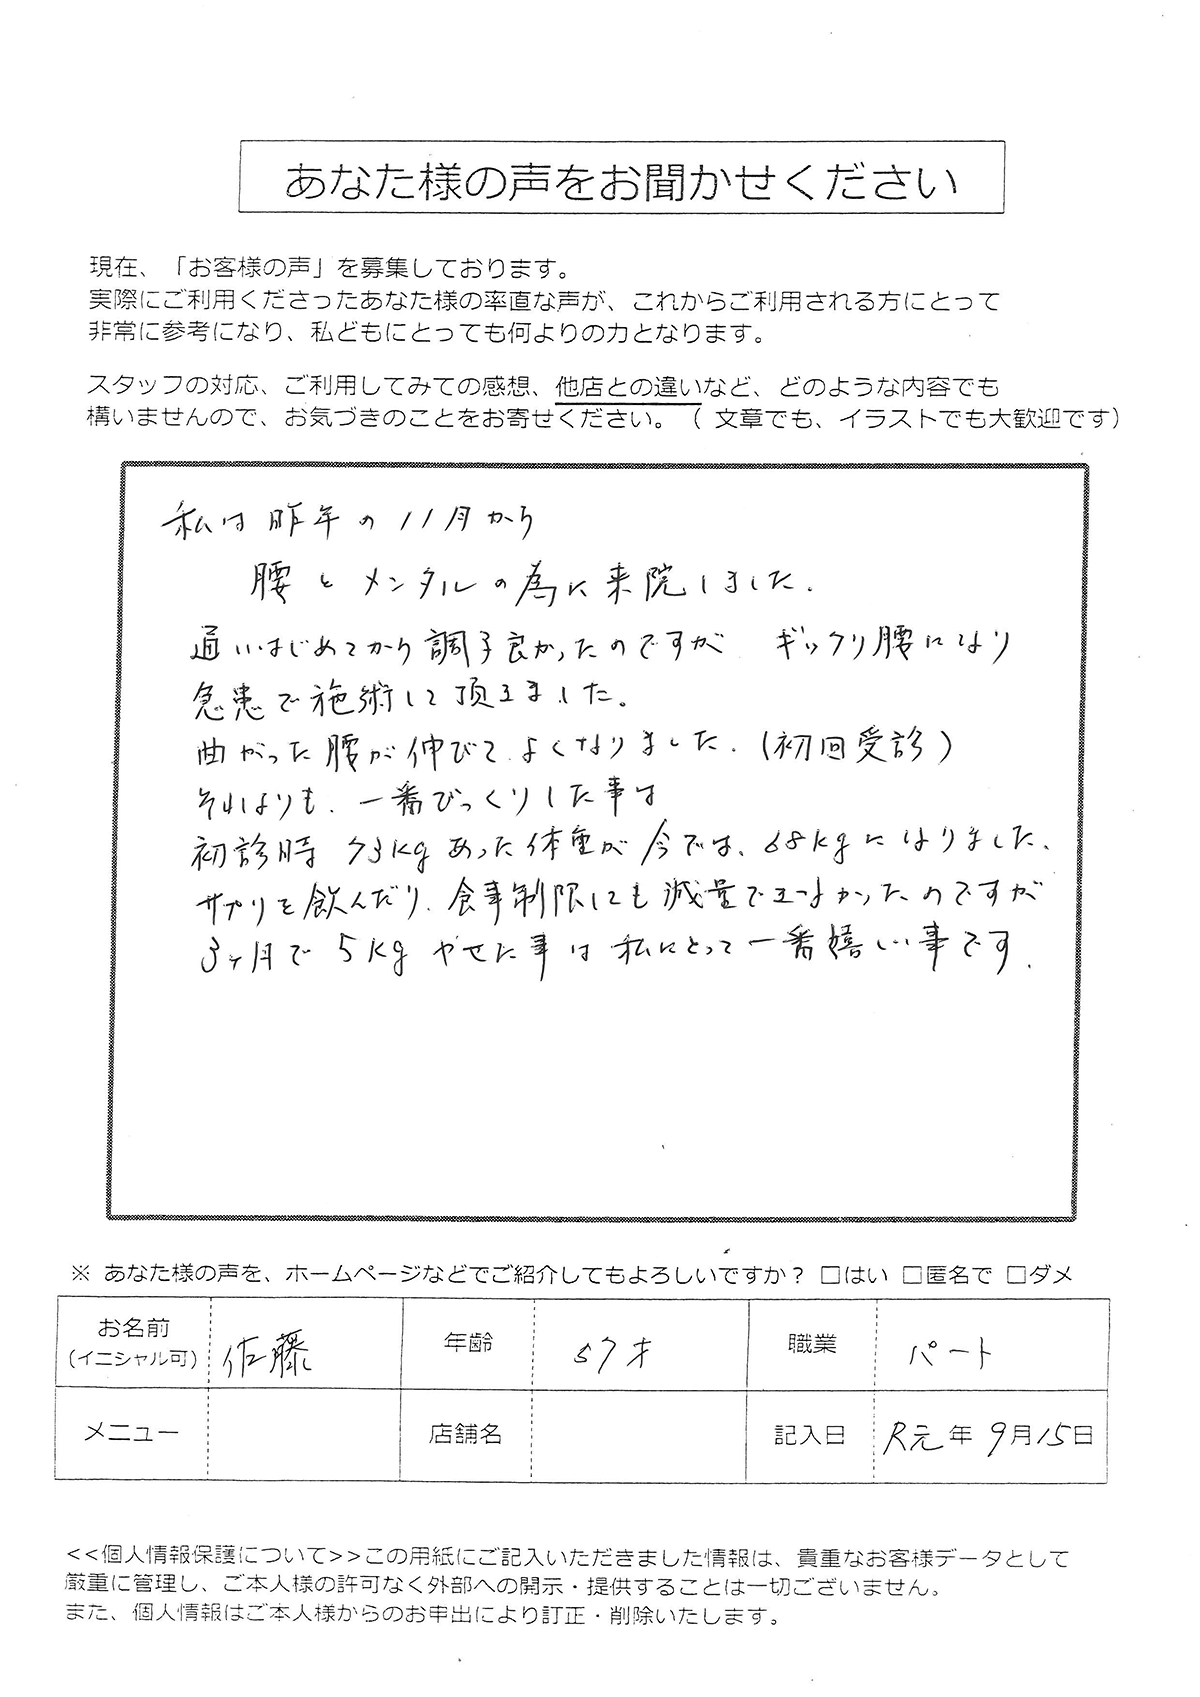 あなた様の声をお聞かせください
現在、「お客様の声」を募集しております。
実際にご利用くださったあなた様の率直な声が、これからご利用される方にとって
非常に参考になり、私どもにとっても何よりの力となります。
スタッフの対応、ご利用してみての感想、他店との違いなど、どのような内容でも
構いませんので、お気づきのことをお寄せください。（ 文章でも、イラストでも大歓迎です）
私は昨年の11月から
腰とメンタルの為に来院しました.
通いはじめてから調子良かったのですが ギックリ腰になり
急患で施術して頂きました。
曲がった腰が伸びて、よくなりました.(初回受診)
それよりも、一番びっくりした事は
初診時73kgあった体重が今では、68kgになりました、
サプリを飲んだり、食事制限しても減量できなかったのですが
3ヶ月で5kgやせた事は私にとって一番嬉しい事です.
※ あなた様の声を、ホームページなどでご紹介してもよろしいですか？ □はい □匿名で □ダメ
お名前 (イニシャル可) 佐藤 年齢 57才 職業 パート
メニュー 店舗名 記入日 R元年9月15日
<<個人情報保護について>>この用紙にご記入いただきました情報は、貴重なお客様データとして
厳重に管理し、ご本人様の許可なく外部への開示・提供することは一切ございません。
また、個人情報はご本人様からのお申出により訂正・削除いたします。